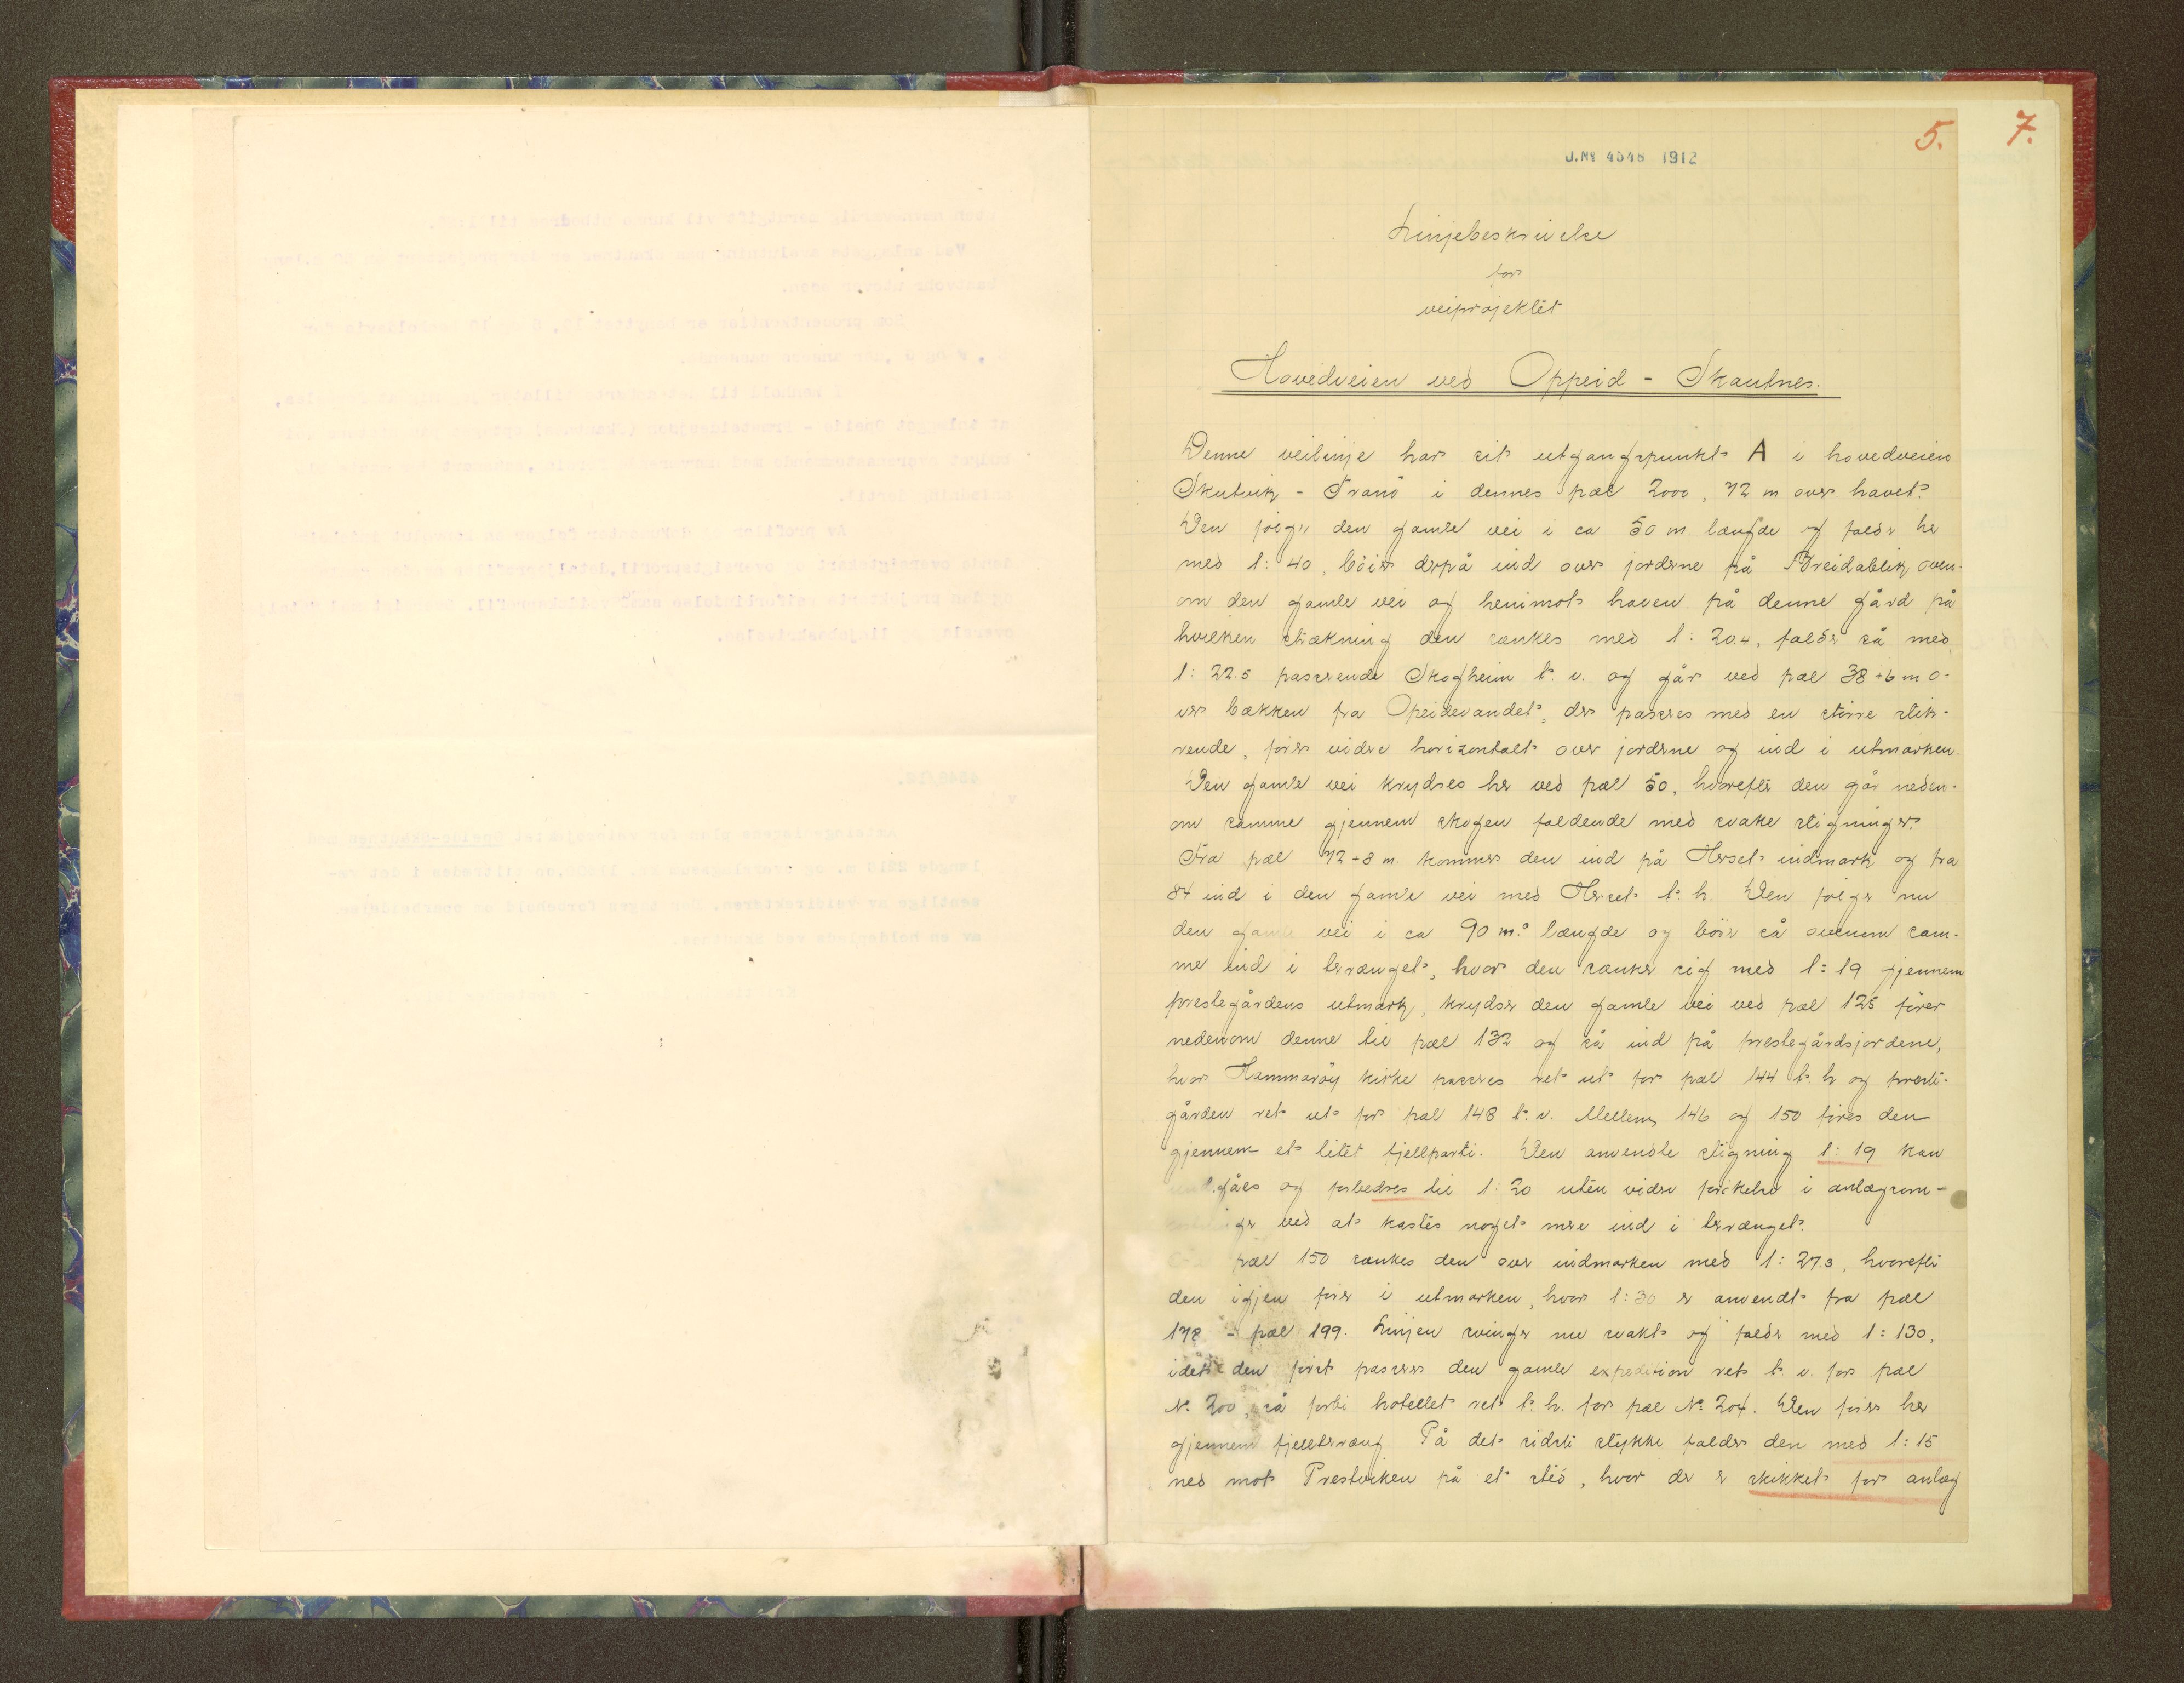 5.
7.
J.Nº 4548 1912
Linjebeskrivelse
for
veiprojektet
Hovedveien ved Oppeid - Skautnes.
Denne veilinje har sit utgangspunkt A i hovedveien
Skutvik - Tranö i dennes pæl 2000, 72 m over havet.
Den følger den gamle vei i ca 50 m længde og falder her
med 1:40, bøier derpå ind over jorderne på Breidablik oven-
om den gamle vei og henimot haven på denne gård på
hvilken strækning den sænkes med 1:20.4, falder så med
1:22.5 passerende Skogheim t.v. og går ved pæl 38+6 m o-
ver bækken fra Opeidevandet, der passeres med en større stik-
rende, fører videre horizontalt over jorderne og ind i utmarken.
Den gamle vei krydses her ved pæl 50, hvorefter den går neden-
om samme gjennem skogen faldende med svake stigninger.
Fra pæl 72+8 m. kommer den ind på Herset indmark og fra
84 ind i den gamle vei med Herset t.h. Den følger nu
den gamle vei i ca 90 m. længde og bøier så ovenom sam-
me ind i terrænget, hvor den sænker sig med 1:19 gjennem
prestegårdens utmark, krydser den gamle vei ved pæl 125 fører
nedenom denne til pæl 132 og så ind på prestegårdsjordene,
hvor Hammarøy kirke passeres ret ut for pæl 144 t.h og preste-
gården ret ut for pæl 148 t.v. Mellem 146 og 150 føres den
gjennem et litet fjellparti. Den anvendte stigning 1:19 kan
undgåes og forbedres til 1:20 uten videre forøkelse i anlægsom-
kostninger ved at kastes noget mere ind i terrænget.
pæl 150 sænkes den over indmarken med 1:27.3, hvorefter
den igjen fører i utmarken, hvor 1:30 er anvendt fra pæl
178 - pæl 199. Linjen svinger nu svakt og falder med 1:130,
idet den først passerer den gamle expedition ret t.v. for pæl
N. 200, så forbi hotellet ret t.h. for pæl N. 204. Den fører her
gjennem fjellterræng På det sidste stykke falder den med 1:15
ned mot Prestviken på et sted, hvor der er skikket for anlæg